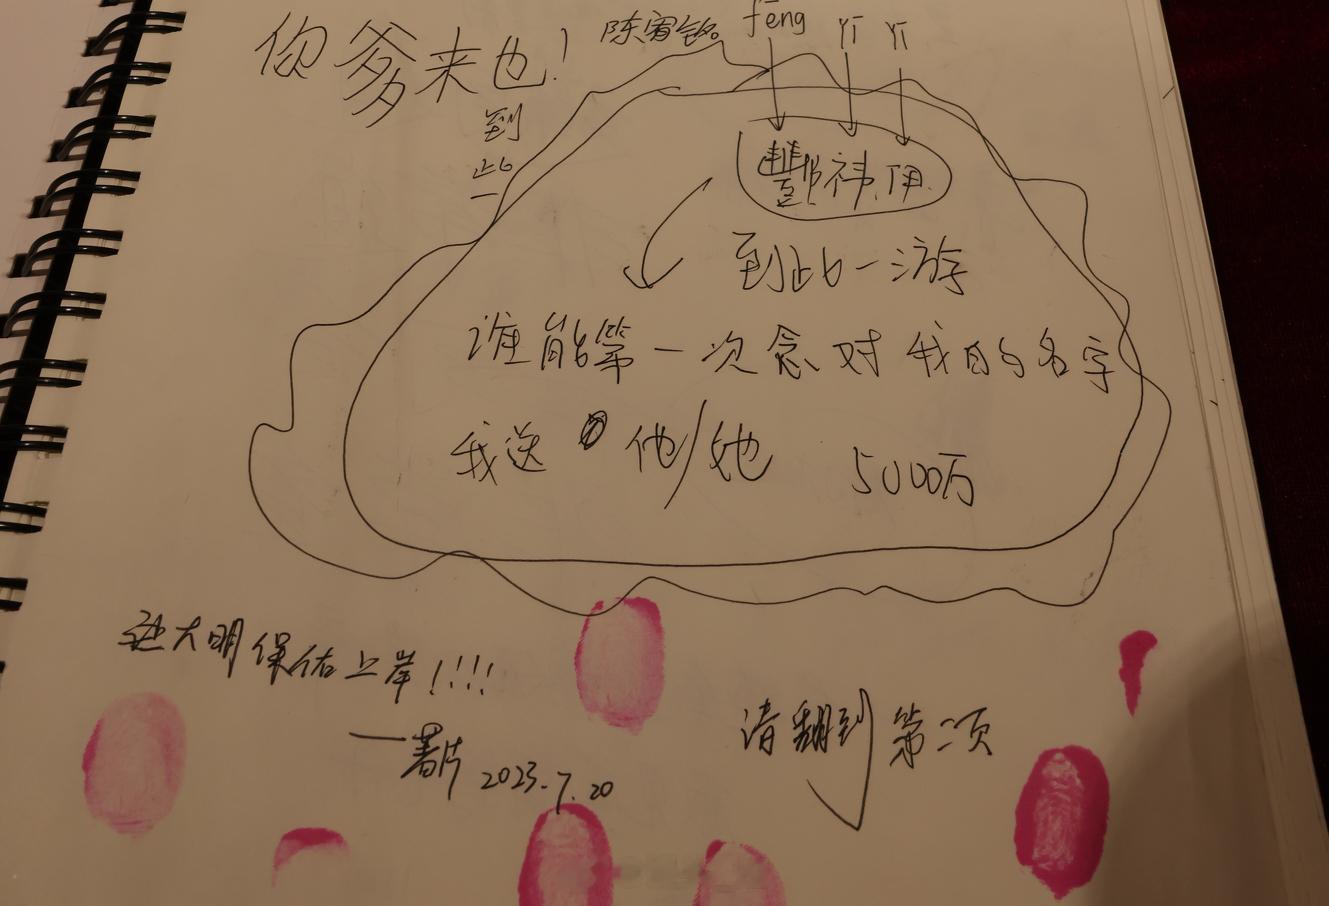 你爹来也！
到
此
一
feng yī yī
酆祎
到此一游
谁能第一次念对我的名字
我送 他/她 5000万
大明保佑上岸！！！！
——薯片 2023.7.20
请翻到第二页